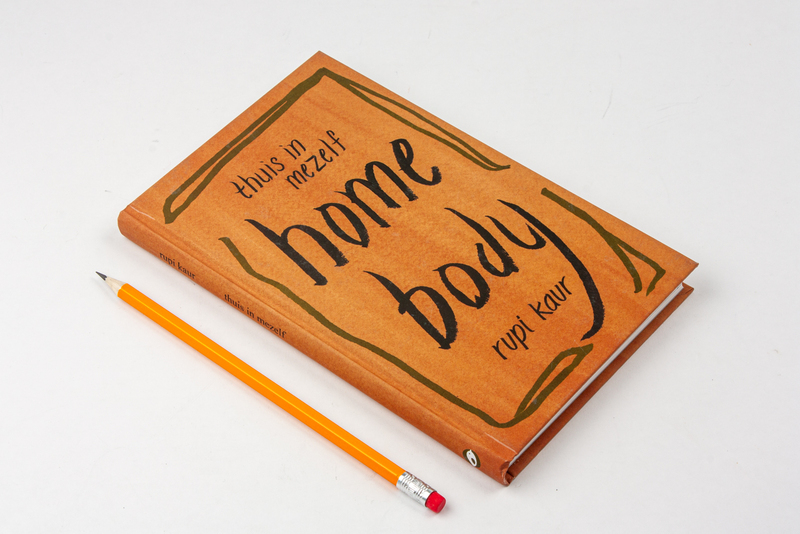 thuis in
mezelf
home
body
rupi kaur
rupi kaur
thuis in mezelf